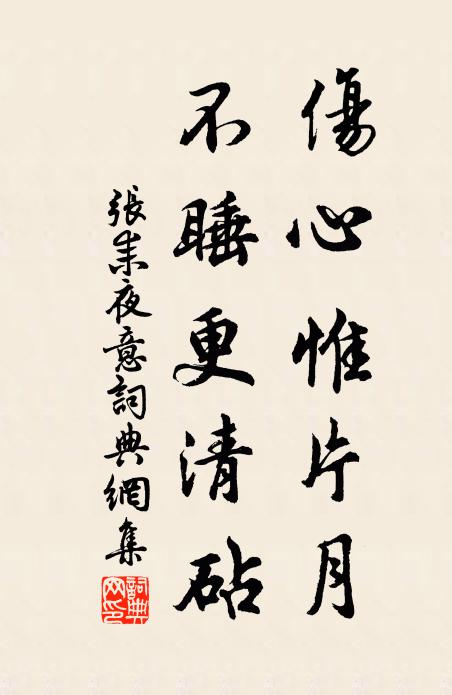 傷心惟片月
不睡更清砧
張耒夜意詞典網集
詞典網印